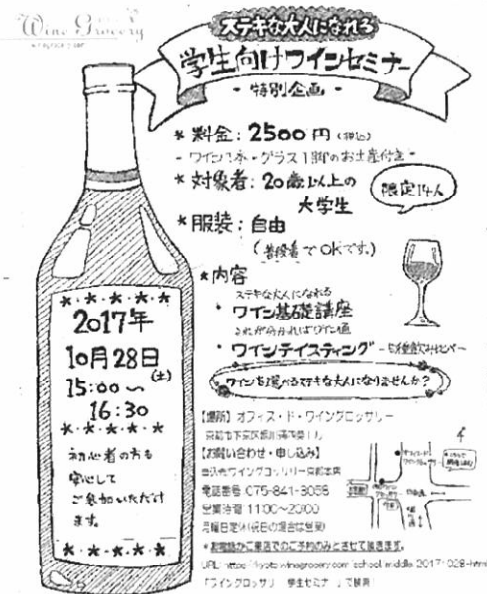 Wine Grocery
ステキな大人になれる
学生向けワインセミナー
- 特別企画 -
* 料金: 2500円 (税込)
- ワイン1本・グラス1脚のお土産付き -
* 対象者: 20歳以上の
大学生
限定14人
* 服装: 自由
(普段着でOKです。)
* 内容
ステキな大人になれる
・ワイン基礎講座
これが分かればワイン通
・ワインテイスティング
ワインを選べるステキな大人になりませんか?
2017年
10月28日
(土)
15:00〜
16:30
初心者の方も
安心して
ご参加いただけ
ます。
【場所】オフィス・ド・ワイングロッサリー
【お問い合わせ・申し込み】
申込先ワイングロッサリー京都本店
電話番号 075-841-3058
営業時間 11:00〜20:00
月曜日定休(祝日の場合は営業)
*お電話かご来店でのご予約のみとさせて頂きます。
「ワイングロッサリー 学生セミナー」で検索!